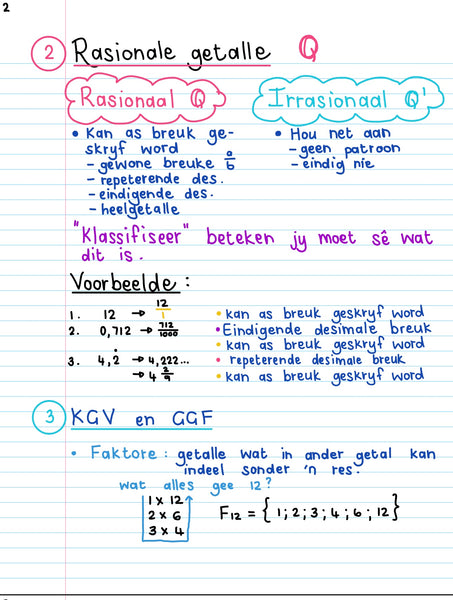 2
2 Rasionale getalle Q
Rasionaal Q
• Kan as breuk ge-
skryf word
- gewone breuke a/b
- repeterende des.
- eindigende des.
- heelgetalle
Irrasionaal Q'
• Hou net aan
- geen patroon
- eindig nie
"Klassifiseer" beteken jy moet sê wat
dit is.
Voorbeelde :
1. 12 → 12/1 • kan as breuk geskryf word
2. 0,712 → 712/1000 • Eindigende desimale breuk
• kan as breuk geskryf word
3. 4,2̇ → 4,222... • repeterende desimale breuk
→ 4 2/9 • kan as breuk geskryf word
3 KGV en GGF
• Faktore : getalle wat in ander getal kan
indeel sonder 'n res.
wat alles gee 12?
1 x 12
2 x 6
3 x 4
F12 = { 1; 2; 3; 4; 6; 12 }